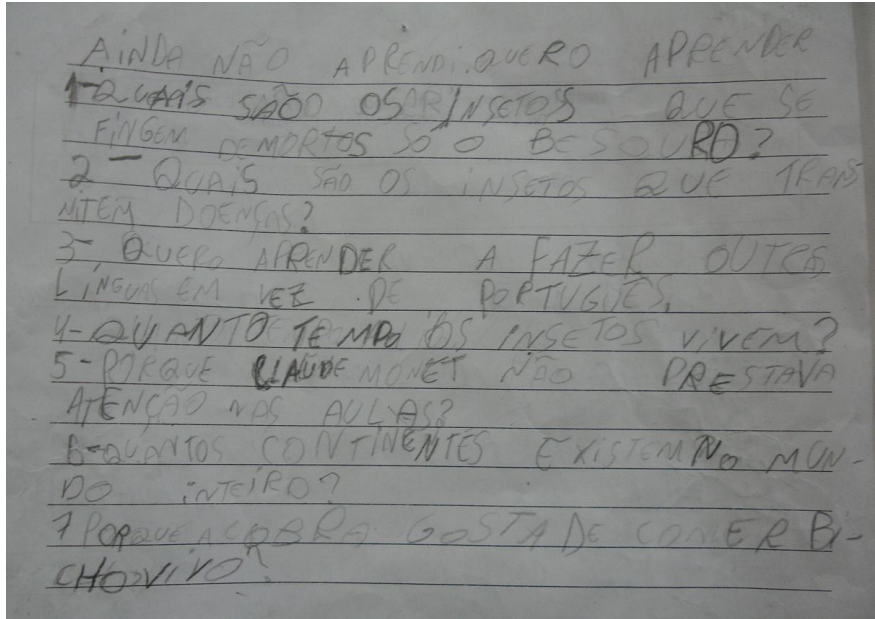 AINDA NÃO APRENDI. QUERO APRENDER
1-QUAIS SÃO OS INSETOS QUE SE
FINGEM DE MORTOS SÓ O BESOURO?
2- QUAIS SÃO OS INSETOS QUE TRANS
MITEM DOENÇAS?
3- QUERO APRENDER A FAZER OUTRAS
LÍNGUAS EM VEZ DE PORTUGUÊS.
4- QUANTO TEMPO OS INSETOS VIVEM?
5- PORQUE CLAUDE MONET NÃO PRESTAVA
ATENÇÃO NAS AULAS?
6-QUANTOS CONTINENTES EXISTEM NO MUN-
DO INTEIRO?
7 PORQUE A COBRA GOSTA DE COMER BI-
CHO VIVO?